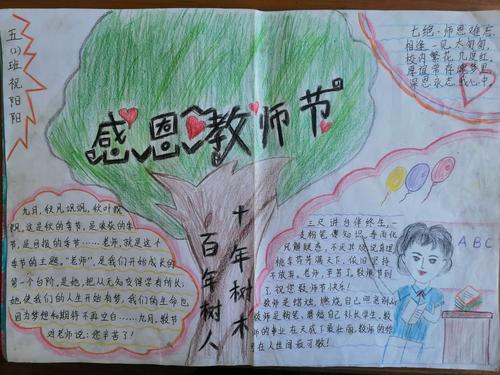 五(1)班祝阳阳
感恩教师节
七绝·师恩难忘
相逢一见太匆匆,
校内繁花几度红。
厚谊常存魂梦里,
深恩永志我心中。
十年树木
百年树人
九月,秋风飒飒,秋叶飘
飘,这是秋的季节,是收获的季
节,是日报的季节……老师,就是这个
季节的主题。"老师",是我们开始成长的
第一个台阶,是她,把从无知变得学有所长;
她使我们的人生开始有梦,我们的生命也
因为梦想和期待不再空白……九月,教节
对老师说:您辛苦了!
三尺讲台伴终生,一
支粉笔
解疑惑,
桃李芬芳满天下,依旧坚持
不放弃。老师,辛苦了,教师节到
了,祝您教师节快乐!
教师是蜡烛,燃烧自己照亮别
教师是粉笔,磨短自己补长学生,教
师的事业在天底下最壮丽,教师的
在人生间最可敬!
ABC